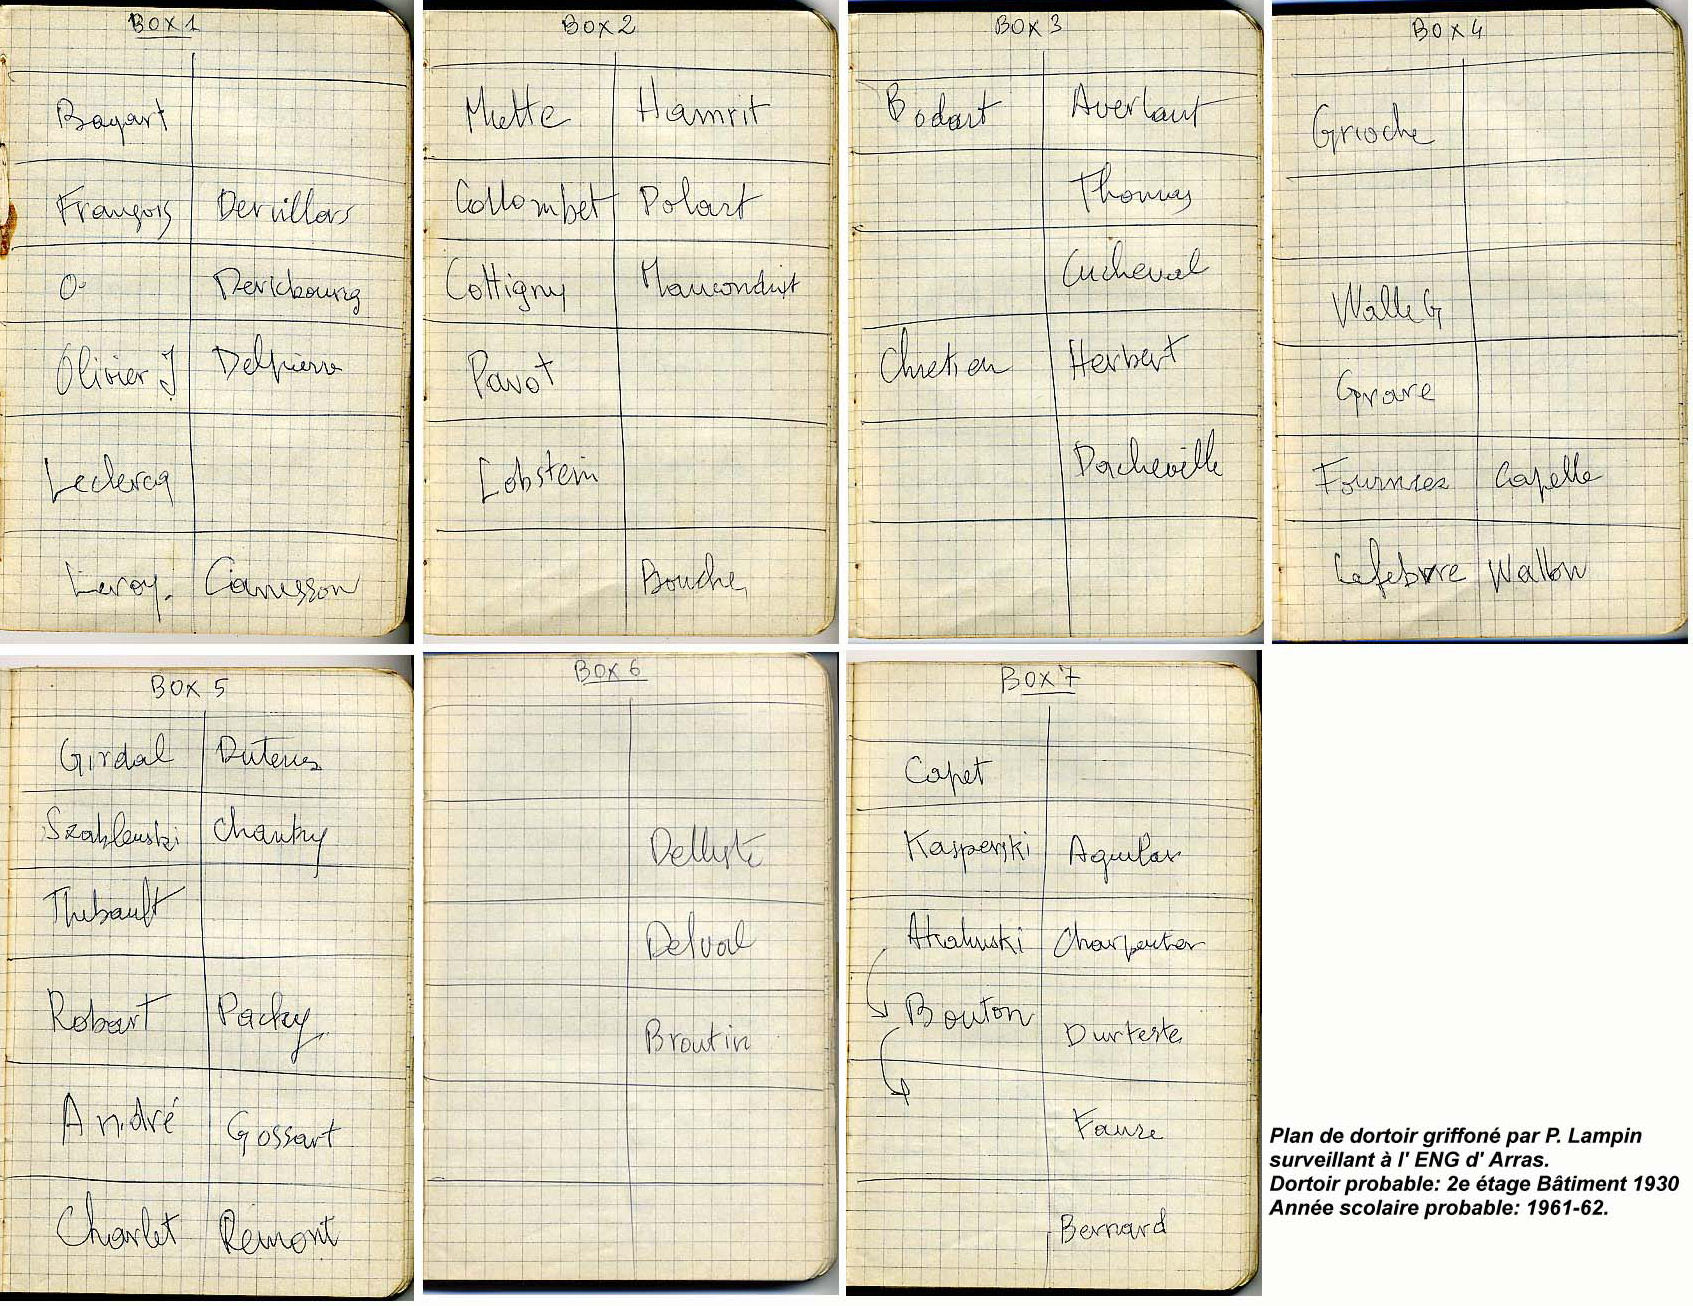 BOX 1
Bagart
François Dervillers
O. Derickbourg
Olivier J Delpierre
Leclercq
Leroy. Canesson
BOX 2
Miette Hamrit
Collombet Polart
Cottigny Mauconduit
Pavot
Lobstein
Bouche
BOX 3
Bodart Averlant
Thomas
Cucheval
Chretien Herbert
Dacheville
BOX 4
Grioche
Walle G
Grare
Fournier Capelle
Lefebvre Wallon
BOX 5
Girdal Dutems
Szablewski Chantry
Thibault
Robart Packy
André Gossart
Charlet Rémont
BOX 6
Delval
Broutin
BOX 7
Capet
Kasperski Aguilar
Charpentier
Bouton Durteste
Faure
Bernard
Plan de dortoir griffoné par P. Lampin
surveillant à l' ENG d' Arras.
Dortoir probable: 2e étage Bâtiment 1930
Année scolaire probable: 1961-62.